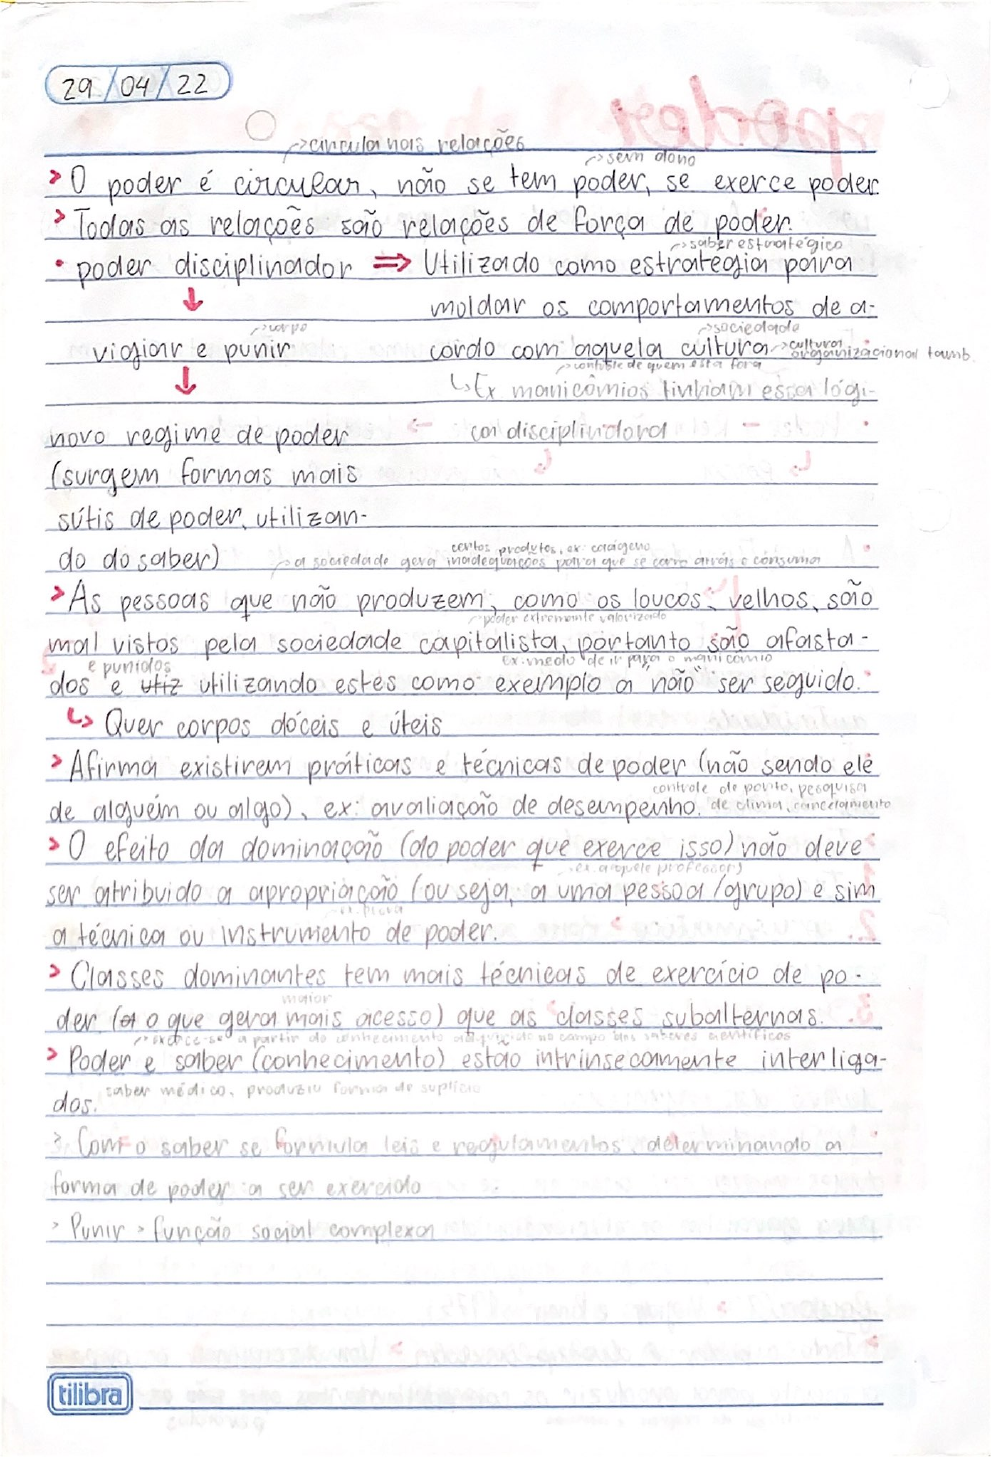 29/04/22
circula nas relações
sem dono
> O poder é circular, não se tem poder, se exerce poder
> Todas as relações são relações de força de poder.
saber estratégico
• poder disciplinador ⇒ Utilizado como estratégia para
moldar os comportamentos de a-
corpo
sociedade
vigiar e punir cordo com aquela cultura cultura organizacional tamb.
controle de quem esta fora
Ex manicômios tinham essa lógi-
novo regime de poder ca disciplinadora
(surgem formas mais
sútis de poder, utilizan-
certos produtos, ex: colágeno
do do saber) a sociedade gera inadequações para que se corra atrás e consuma
> As pessoas que não produzem, como os loucos, velhos, são
poder extremante valorizado
mal vistos pela sociedade capitalista, portanto são afasta-
e punidos
ex: medo de ir para o manicômio
dos e utiz utilizando estes como exemplo a não ser seguido.
Quer corpos dóceis e úteis
> Afirma existirem práticas e técnicas de poder (não sendo ele
controle de ponto, pesquisa
de alguém ou algo), ex: avaliação de desempenho, de clima, cancelamento
> O efeito da dominação (do poder que exerce isso) não deve
ex. aquele professor)
ser atribuido a apropriação (ou seja, a uma pessoa/grupo) e sim
ex. prova
a técnica ou instrumento de poder.
> Classes dominantes tem mais técnicas de exercício de po-
maior
der (o que gera mais acesso) que as classes subalternas.
exerce-se a partir do conhecimento adquirido no campo dos saberes científicos
> Poder e saber (conhecimento) estão intrinsecamente interliga-
saber médico, produziu forma de suplício
dos.
> Com o saber se formula leis e regulamentos, determinando a
forma de poder a ser exercido
> Punir > função social complexa
tilibra